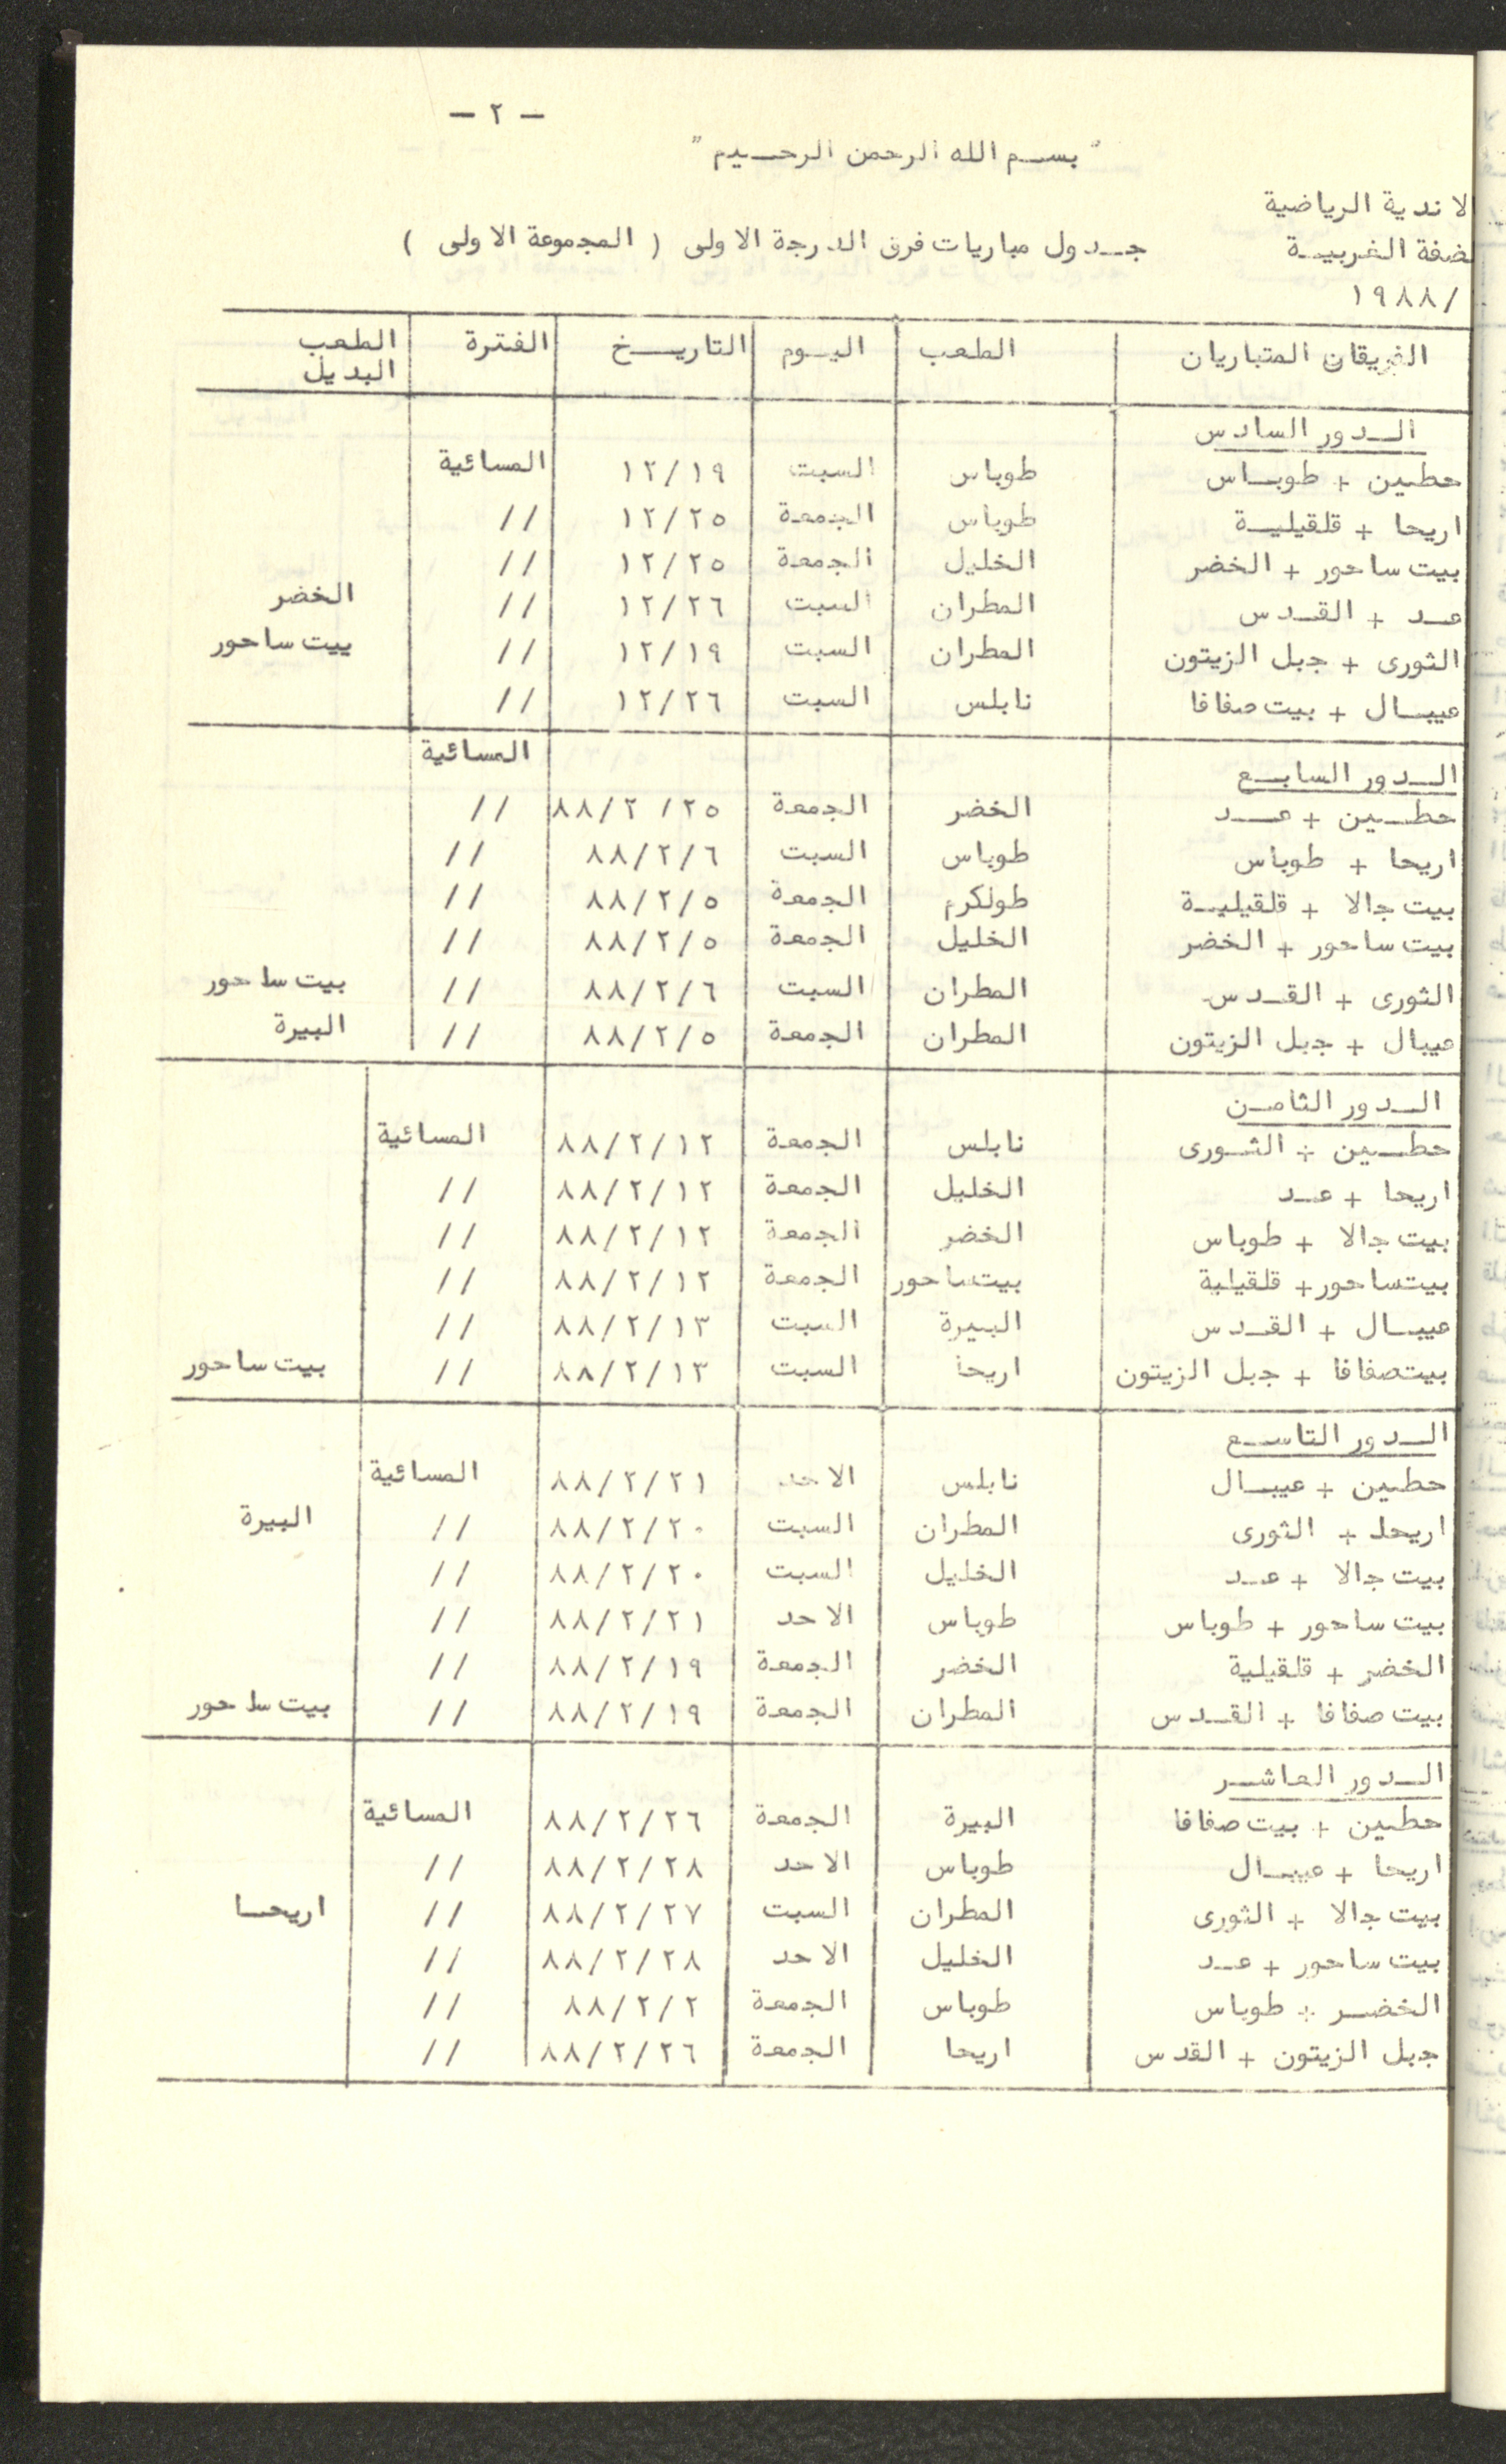 - ٢ -
" بسم الله الرحمن الرحيم "
الاندية الرياضية
لضفة الغربية جدول مباريات فرق الدرجة الاولى ( المجموعة الاولى )
/١٩٨٨
الفريقان المتباريان الملعب اليوم التاريخ الفترة الملعب البديل
الدور السادس
حطين + طوباس طوباس السبت ١٢/١٩ المسائية
اريحا + قلقيلية طوباس الجمعة ١٢/٢٥ //
بيت ساحور + الخضر الخليل الجمعة ١٢/٢٥ //
عد + القدس المطران السبت ١٢/٢٦ // الخضر
الثورى + جبل الزيتون المطران السبت ١٢/١٩ // بيت ساحور
عيبال + بيت صفافا نابلس السبت ١٢/٢٦ //
الدور السابع المسائية
حطين + عد الخضر الجمعة ٨٨/٢/٢٥ //
اريحا + طوباس طوباس السبت ٨٨/٢/٦ //
بيت جالا + قلقيلية طولكرم الجمعة ٨٨/٢/٥ //
بيت ساحور + الخضر الخليل الجمعة ٨٨/٢/٥ //
الثورى + القدس المطران السبت ٨٨/٢/٦ // بيت ساحور
عيبال + جبل الزيتون المطران الجمعة ٨٨/٢/٥ // البيرة
الدور الثامن
حطين + الثورى نابلس الجمعة ٨٨/٢/١٢ المسائية
اريحا + عد الخليل الجمعة ٨٨/٢/١٢ //
بيت جالا + طوباس الخضر الجمعة ٨٨/٢/١٢ //
بيت ساحور + قلقيلية بيت ساحور الجمعة ٨٨/٢/١٢ //
عيبال + القدس البيرة السبت ٨٨/٢/١٣ //
بيت صفافا + جبل الزيتون اريحا السبت ٨٨/٢/١٣ // بيت ساحور
الدور التاسع
حطين + عيبال نابلس الاحد ٨٨/٢/٢١ المسائية
اريحا + الثورى المطران السبت ٨٨/٢/٢٠ // البيرة
بيت جالا + عد الخليل السبت ٨٨/٢/٢٠ //
بيت ساحور + طوباس طوباس الاحد ٨٨/٢/٢١ //
الخضر + قلقيلية الخضر الجمعة ٨٨/٢/١٩ //
بيت صفافا + القدس المطران الجمعة ٨٨/٢/١٩ // بيت ساحور
الدور العاشر
حطين + بيت صفافا البيرة الجمعة ٨٨/٢/٢٦ المسائية
اريحا + عيبال طوباس الاحد ٨٨/٢/٢٨ //
بيت جالا + الثورى المطران السبت ٨٨/٢/٢٧ // اريحا
بيت ساحور + عد الخليل الاحد ٨٨/٢/٢٨ //
الخضر + طوباس طوباس الجمعة ٨٨/٢/٢ //
جبل الزيتون + القدس اريحا الجمعة ٨٨/٢/٢٦ //